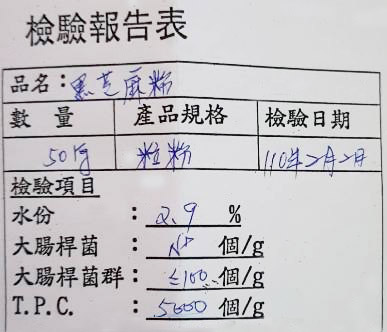 檢驗報告表
品名：黑芝麻粉
數量 產品規格 檢驗日期
50kg 粒粉 110年2月2日
檢驗項目
水份 ：2.9 %
大腸桿菌 ：ND 個/g
大腸桿菌群：≤100 個/g
T.P.C. ：5000 個/g